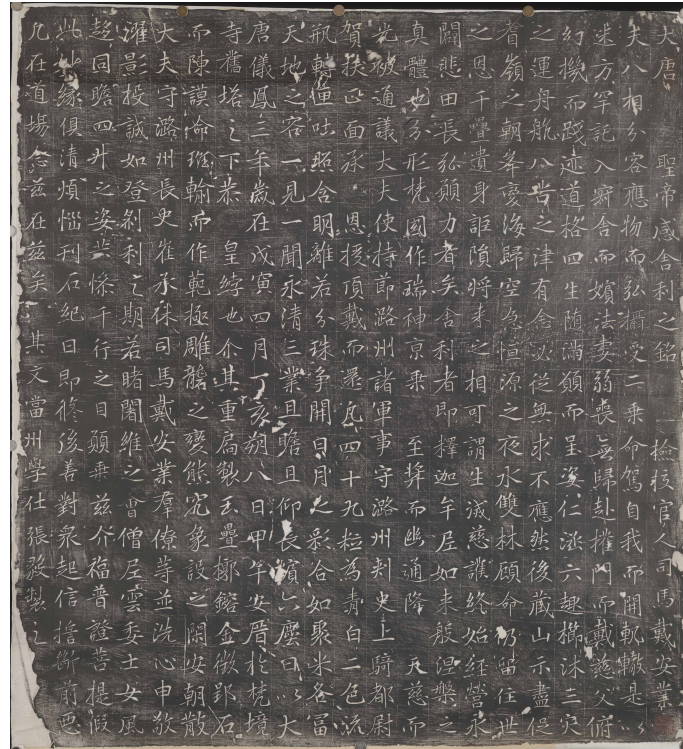 大唐 聖帝感舍利之銘 撿挍官人司馬戴安業
夫八相分容應物而弘攝受二乗命駕自我而開軌轍是以
迷方罕託入窮舍而嬪法妻弱喪無歸赴摧門而戴慈父俯
幻機而踐迹道格四生随滿願而呈姿仁涵六趣櫛沐三灾
之運舟航八苦之津有念必從無求不應然後蔵山示盡促
耆嶺之朝峯變海歸空急恒源之夜水雙林顧命仍留住世
之恩千疊遺身詎隕将来之相可謂生滅慈護終始経營永
闢悲田長弘願力者矣舍利者即釋迦牟尼如来般涅槃之
真體也分形梵國作瑞神京乗 至捧而幽通降 天慈而
光被通議大夫使持節潞州諸軍事守潞州刾史上騎都尉
賀拔正面承 恩授頂戴而還凡四十九粒爲青白二色流
瓶轉匣吐照含明離若分珠争開日月之彩合如聚米各冨
天地之容一見一聞永清三業且瞻且仰長擯六塵曰以大
唐儀鳳三年歳在戊寅四月丁亥朔八日甲午安厝於梵境
寺舊塔之下恭 皇綍也尒其重扃製玉疊槨鎔金徵郢石
而陳謨命班輸而作範極雕鐫之變態究象設之閑安朝散
大夫守潞州長史崔承休司馬戴安業群僚等並洗心申敬
濯影投誠如登刹利之期若睹闍維之會僧尼雲委士女風
趍同瞻四升之姿共慘千行之目願乗兹介福普證菩提假
此妙縁俱清煩惱刊石紀日即脩後善對衆起信撸斷前惡
凢在道場念兹在兹矣 其文當州學仕張毅製之